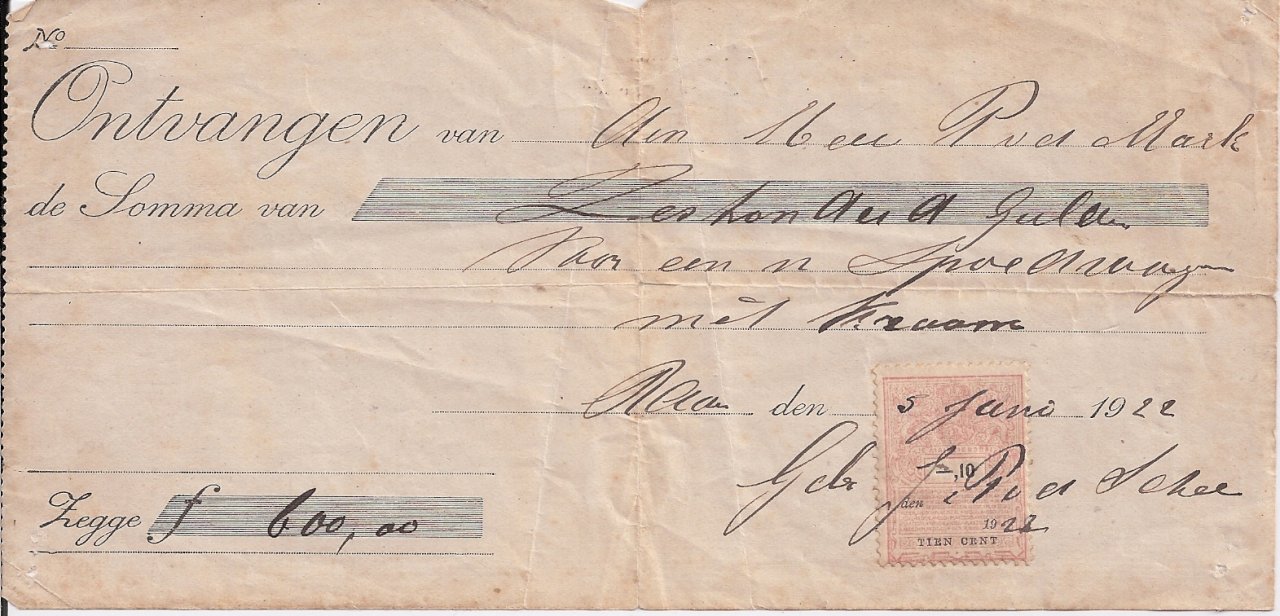 No
Ontvangen van den Heer P vd Mark
de Somma van Zeshonderd Gulden
Voor een n Spoelwagen
mèt Kraam
den 5 Juni 1922
Gebr J P vd Schee
Zegge f 600,00
f -,10
den
1922
TIEN CENT